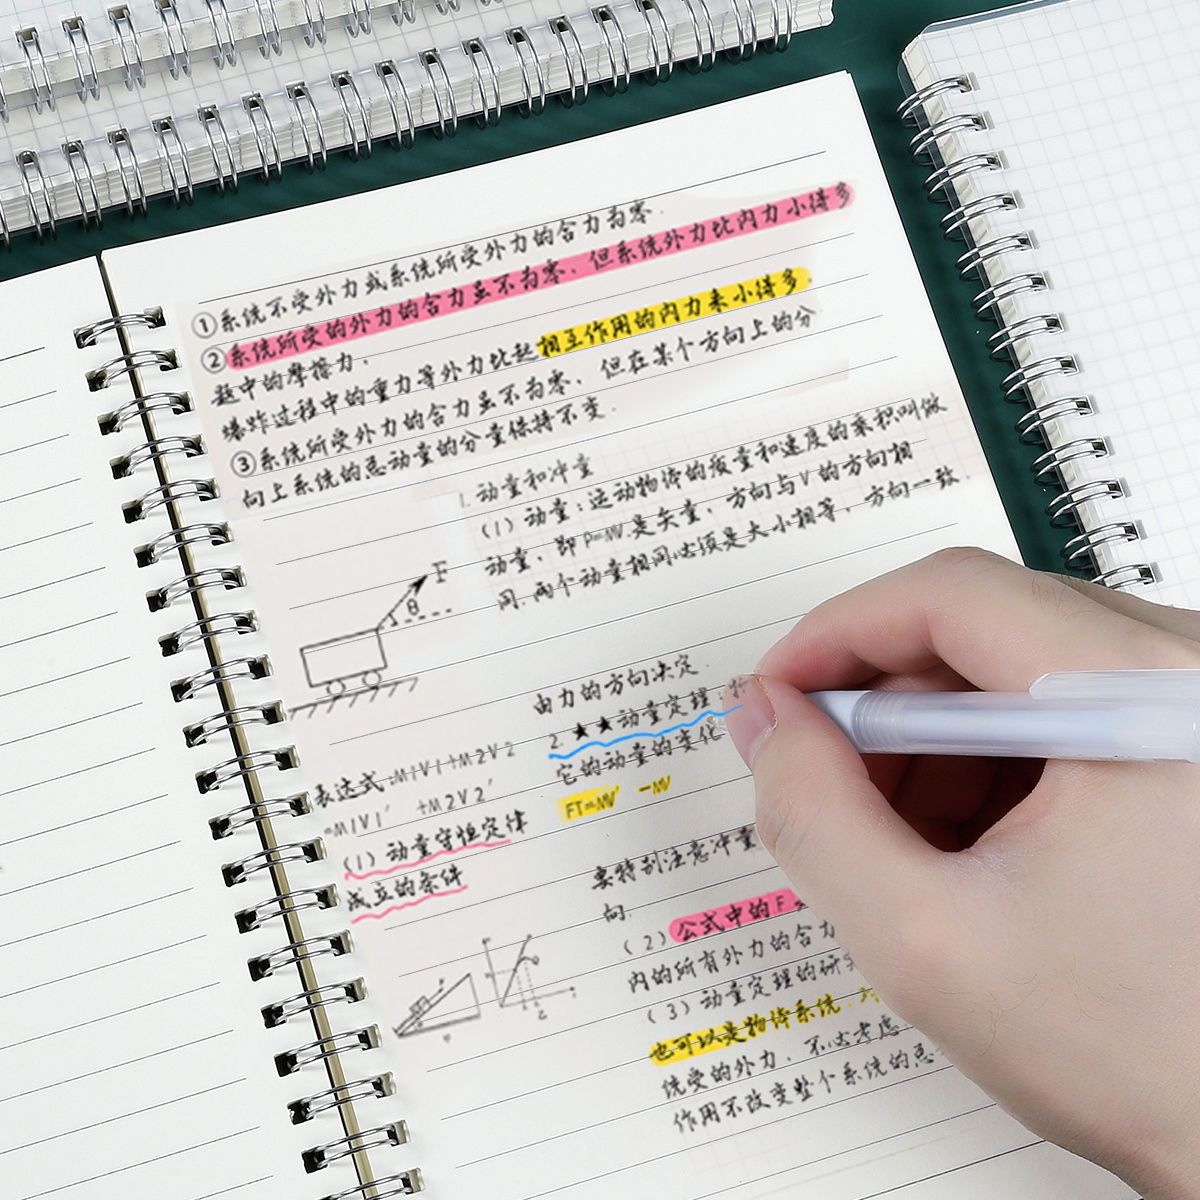 ①系统不受外力或系统所受外力的合力为零.
②系统所受的外力的合力虽不为零,但系统外力比内力小得多
题中的摩擦力,
爆炸过程中的重力等外力比起相互作用的内力来小得多.
③系统所受外力的合力虽不为零,但在某个方向上的分
向上系统的总动量的分量保持不变.
1.动量和冲量
(1)动量:运动物体的质量和速度的乘积叫做
动量,即P=MV.是矢量,方向与V的方向相
同.两个动量相同必须是大小相等,方向一致.
F
θ
由力的方向决定.
2.★★动量定理:
它的动量的变化
FT=MV′ -MV
表达式:M1V1+M2V2
=M1V1′ +M2V2′
(1)动量守恒定律
成立的条件
要特别注意冲量
向.
(2)公式中的F
内的所有外力的合力
(3)动量定理的研
也可以是物体系统.
统受的外力,不必考虑
作用不改变整个系统的总